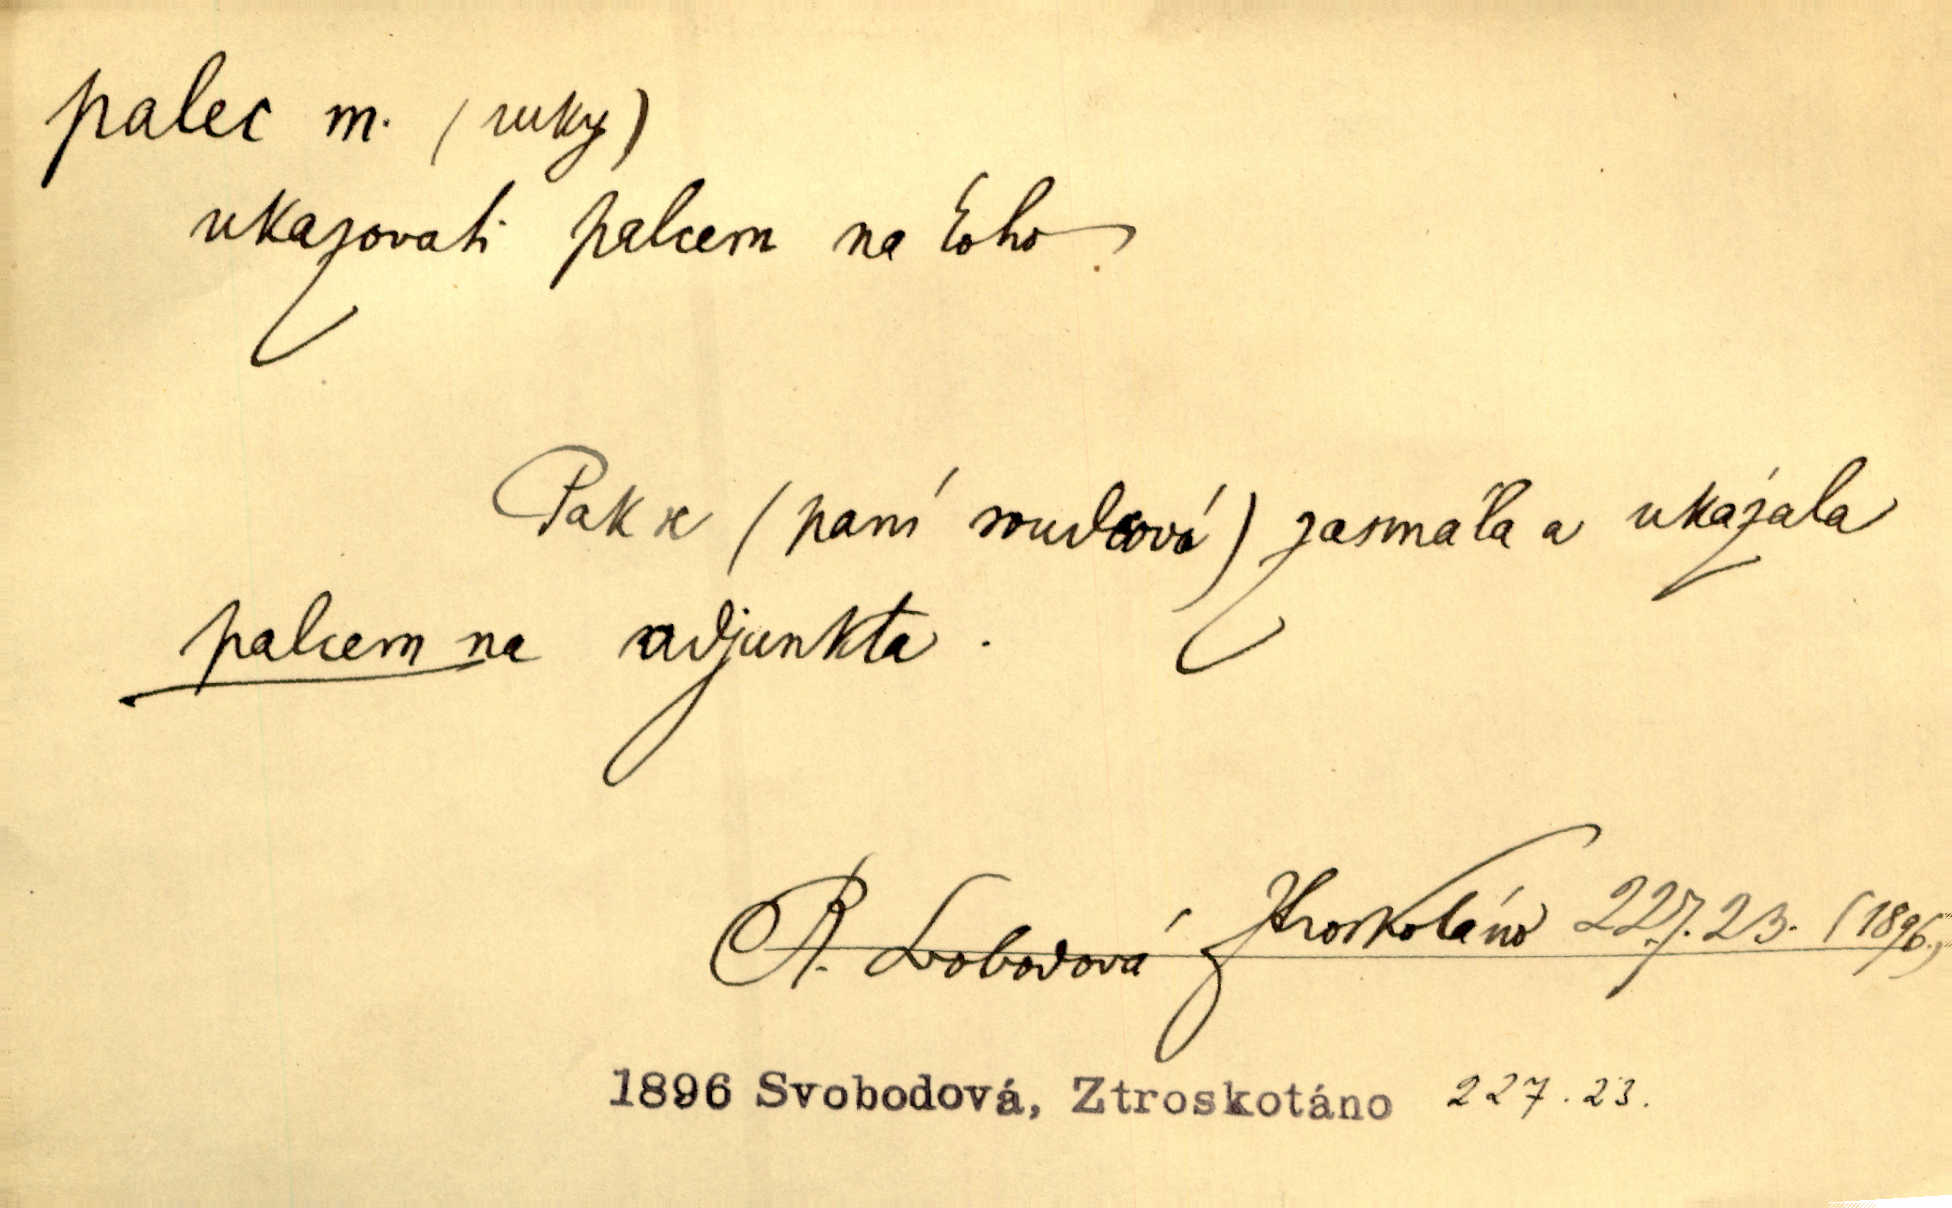 palec m. (ruky)
ukazovati palcem na koho
Pak se (paní soudcová) zasmála a ukázala
palcem na adjunkta.
R. Svobodová Ztroskotáno 227.23. (1896)
1896 Svobodová, Ztroskotáno 227.23.